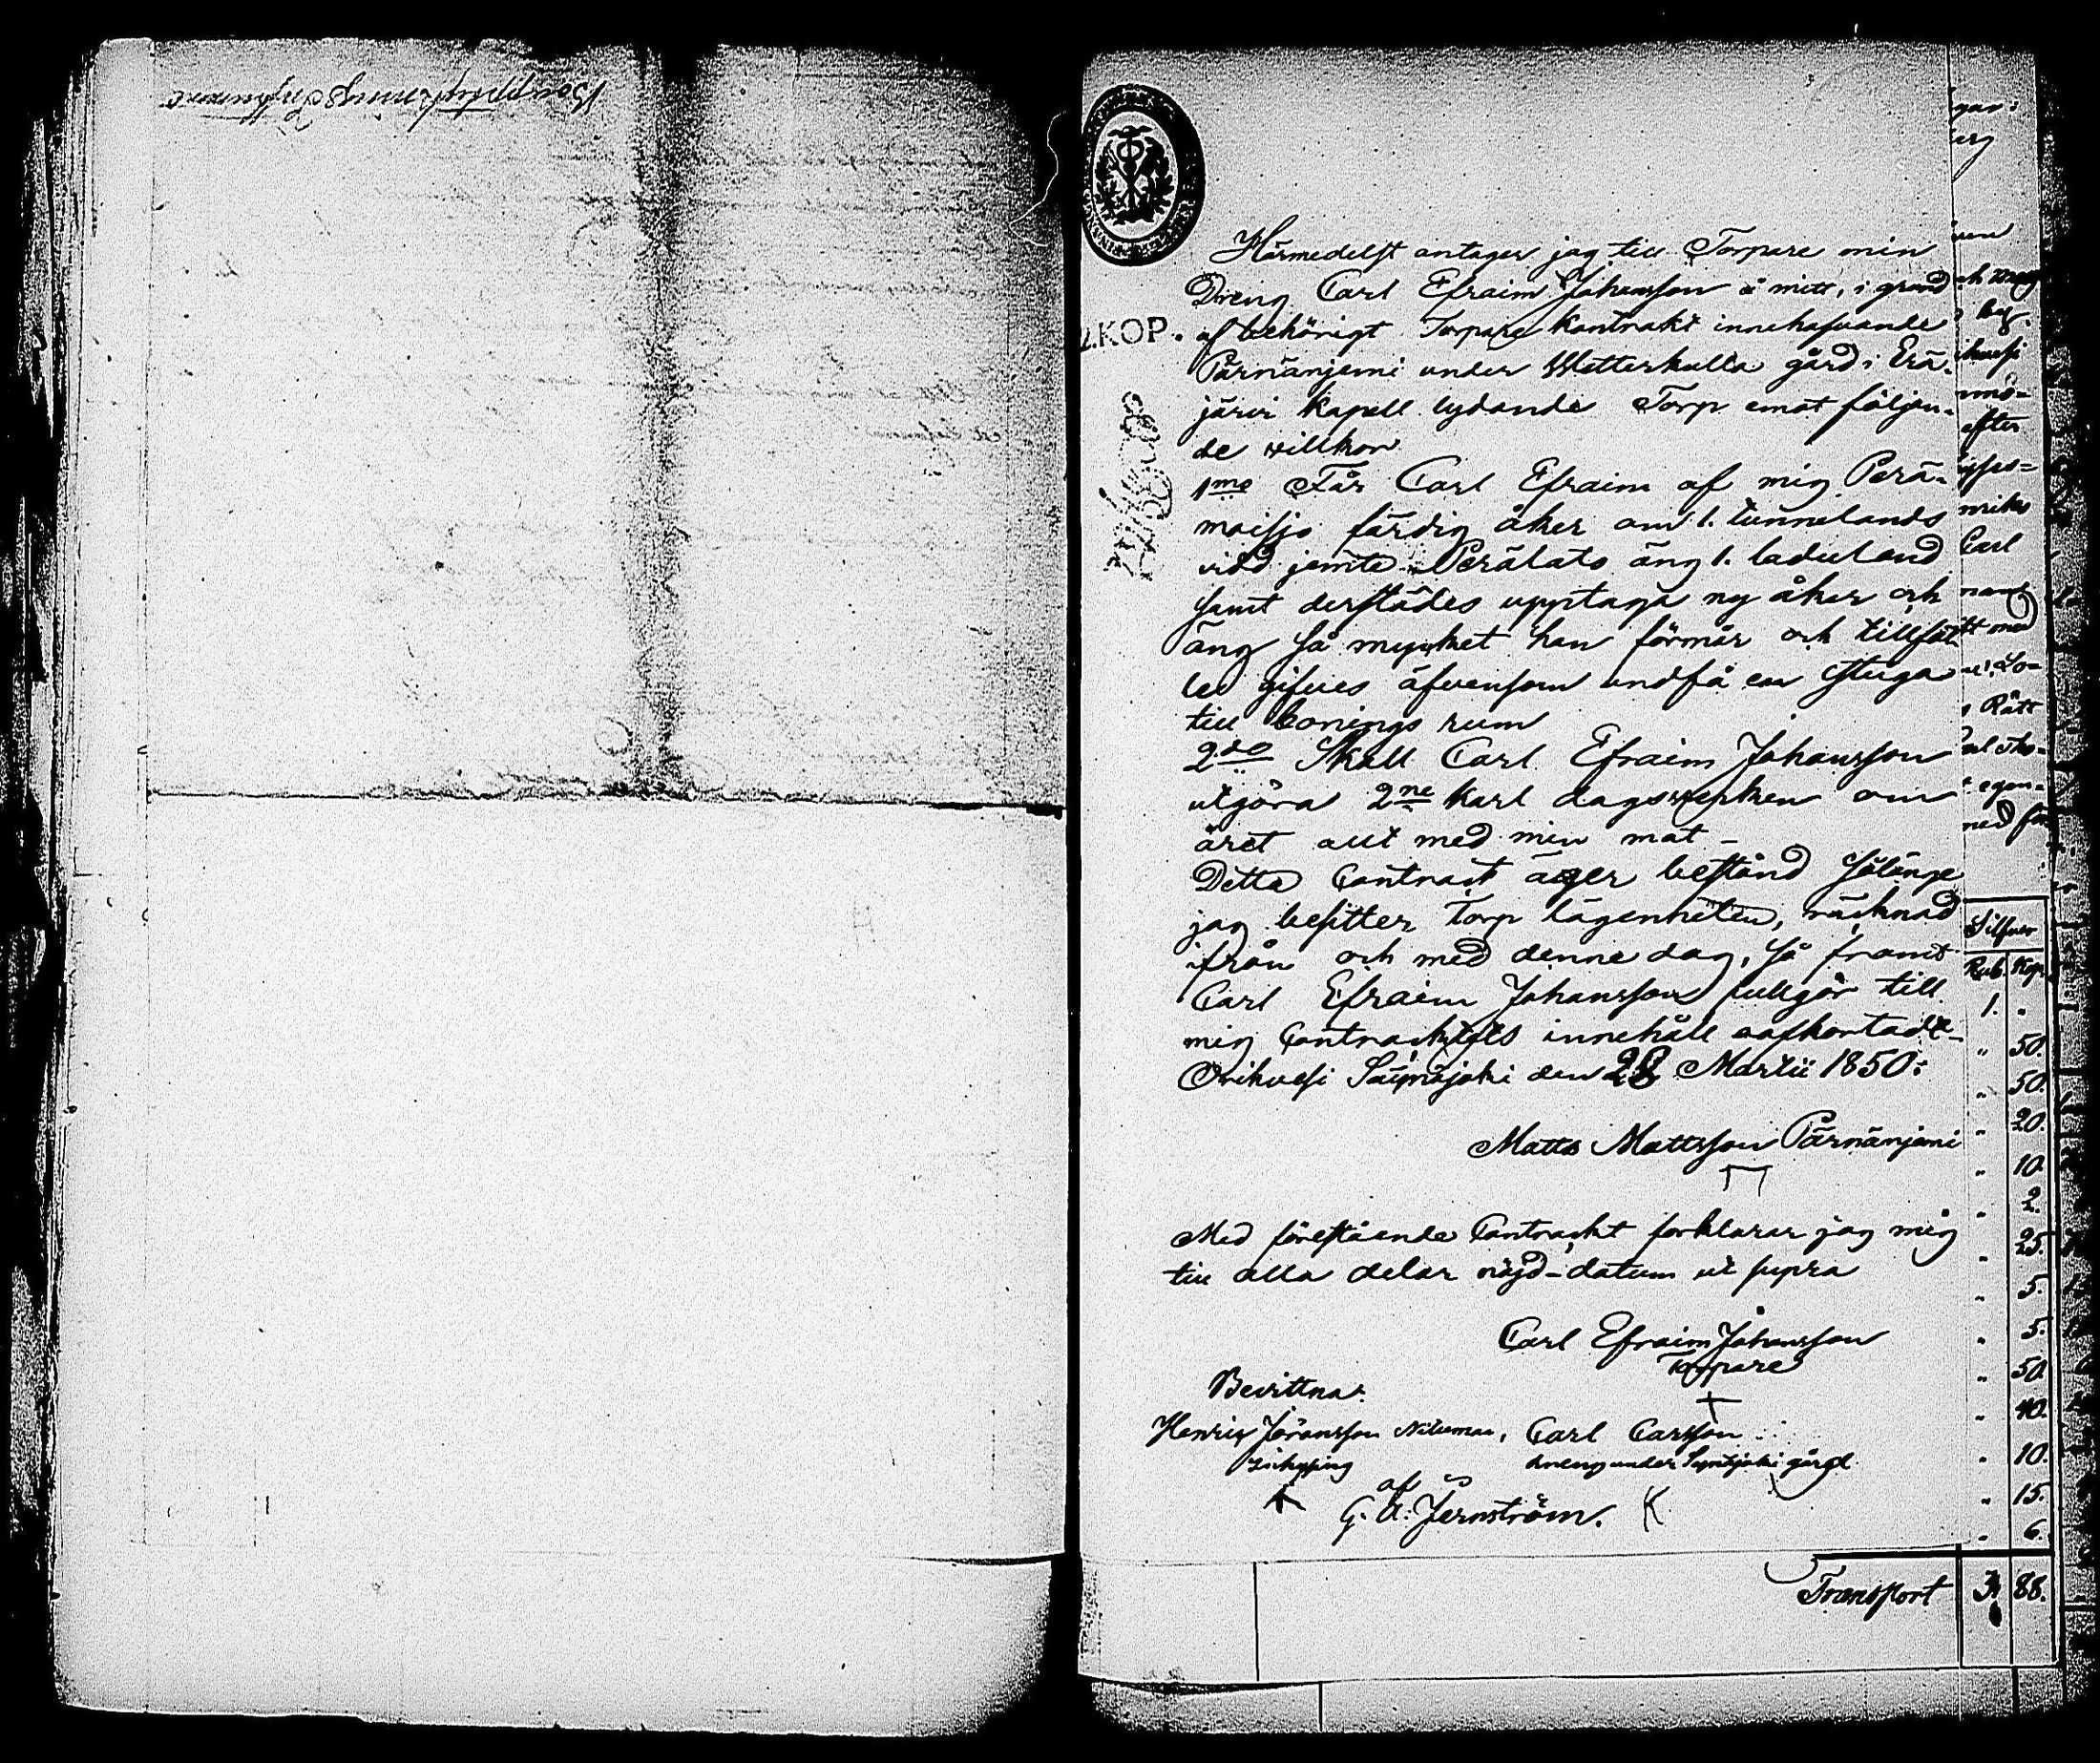 Bouppteknings Instrument
Härmedelst antager jag till Torpare min
Dreng Carl Efraim Johansson å mitt, i grund
2.KOP. af behörigt Torpare Kontrakt innehafvande
Pärnänjemi under Wetterkulla gård i Erä-
järvi Kapell lydande Torp emot följan-
de willkor
1mo Får Carl Efraim af mig Perä-
maisjo färdig åker om 1. tunnelands
vidd jemte Perälato äng 1. laduland
samt derstädes upptaga ny åker och
äng så mycket han förmår och tillfäl
le gifves äfvensom undfå en stuga
till bonings rum
2do Skall Carl Efraim Johansson
utgöra 2ne karl dagswerken om
året allt med min mat-
Detta Contract äger bestånd sålänge
jag besitter Torp lägenheten, räcknad
ifrån och med denne dag, så framt
Carl Efraim Johansson fullgör till
mig Contracktets innehåll oafkortadt-
Orihvesi Säynäjoki den 28 Martii 1850:
Matts Mattsson Pärnänjemi
Med förestående Contrackt forklarar jag mig
till alla delar nöjd-datum ut supra
Carl Efraim Johansson
Torpare
Bevittna:
Henrix Jöransson Carl Carsson
Inhysing dreng under gård
af
G. A: Jernström.
gar:
erg
och
efter
Carl
tt med
Rätt
egen-
med för
Silfver
Rub. Kop.
1. "
" 50.
" 50.
" 20.
" 10.
" 2.
" 25.
" 5.
" 5.
" 50.
" 40.
" 10.
" 15.
" 6.
Transport 3 88.